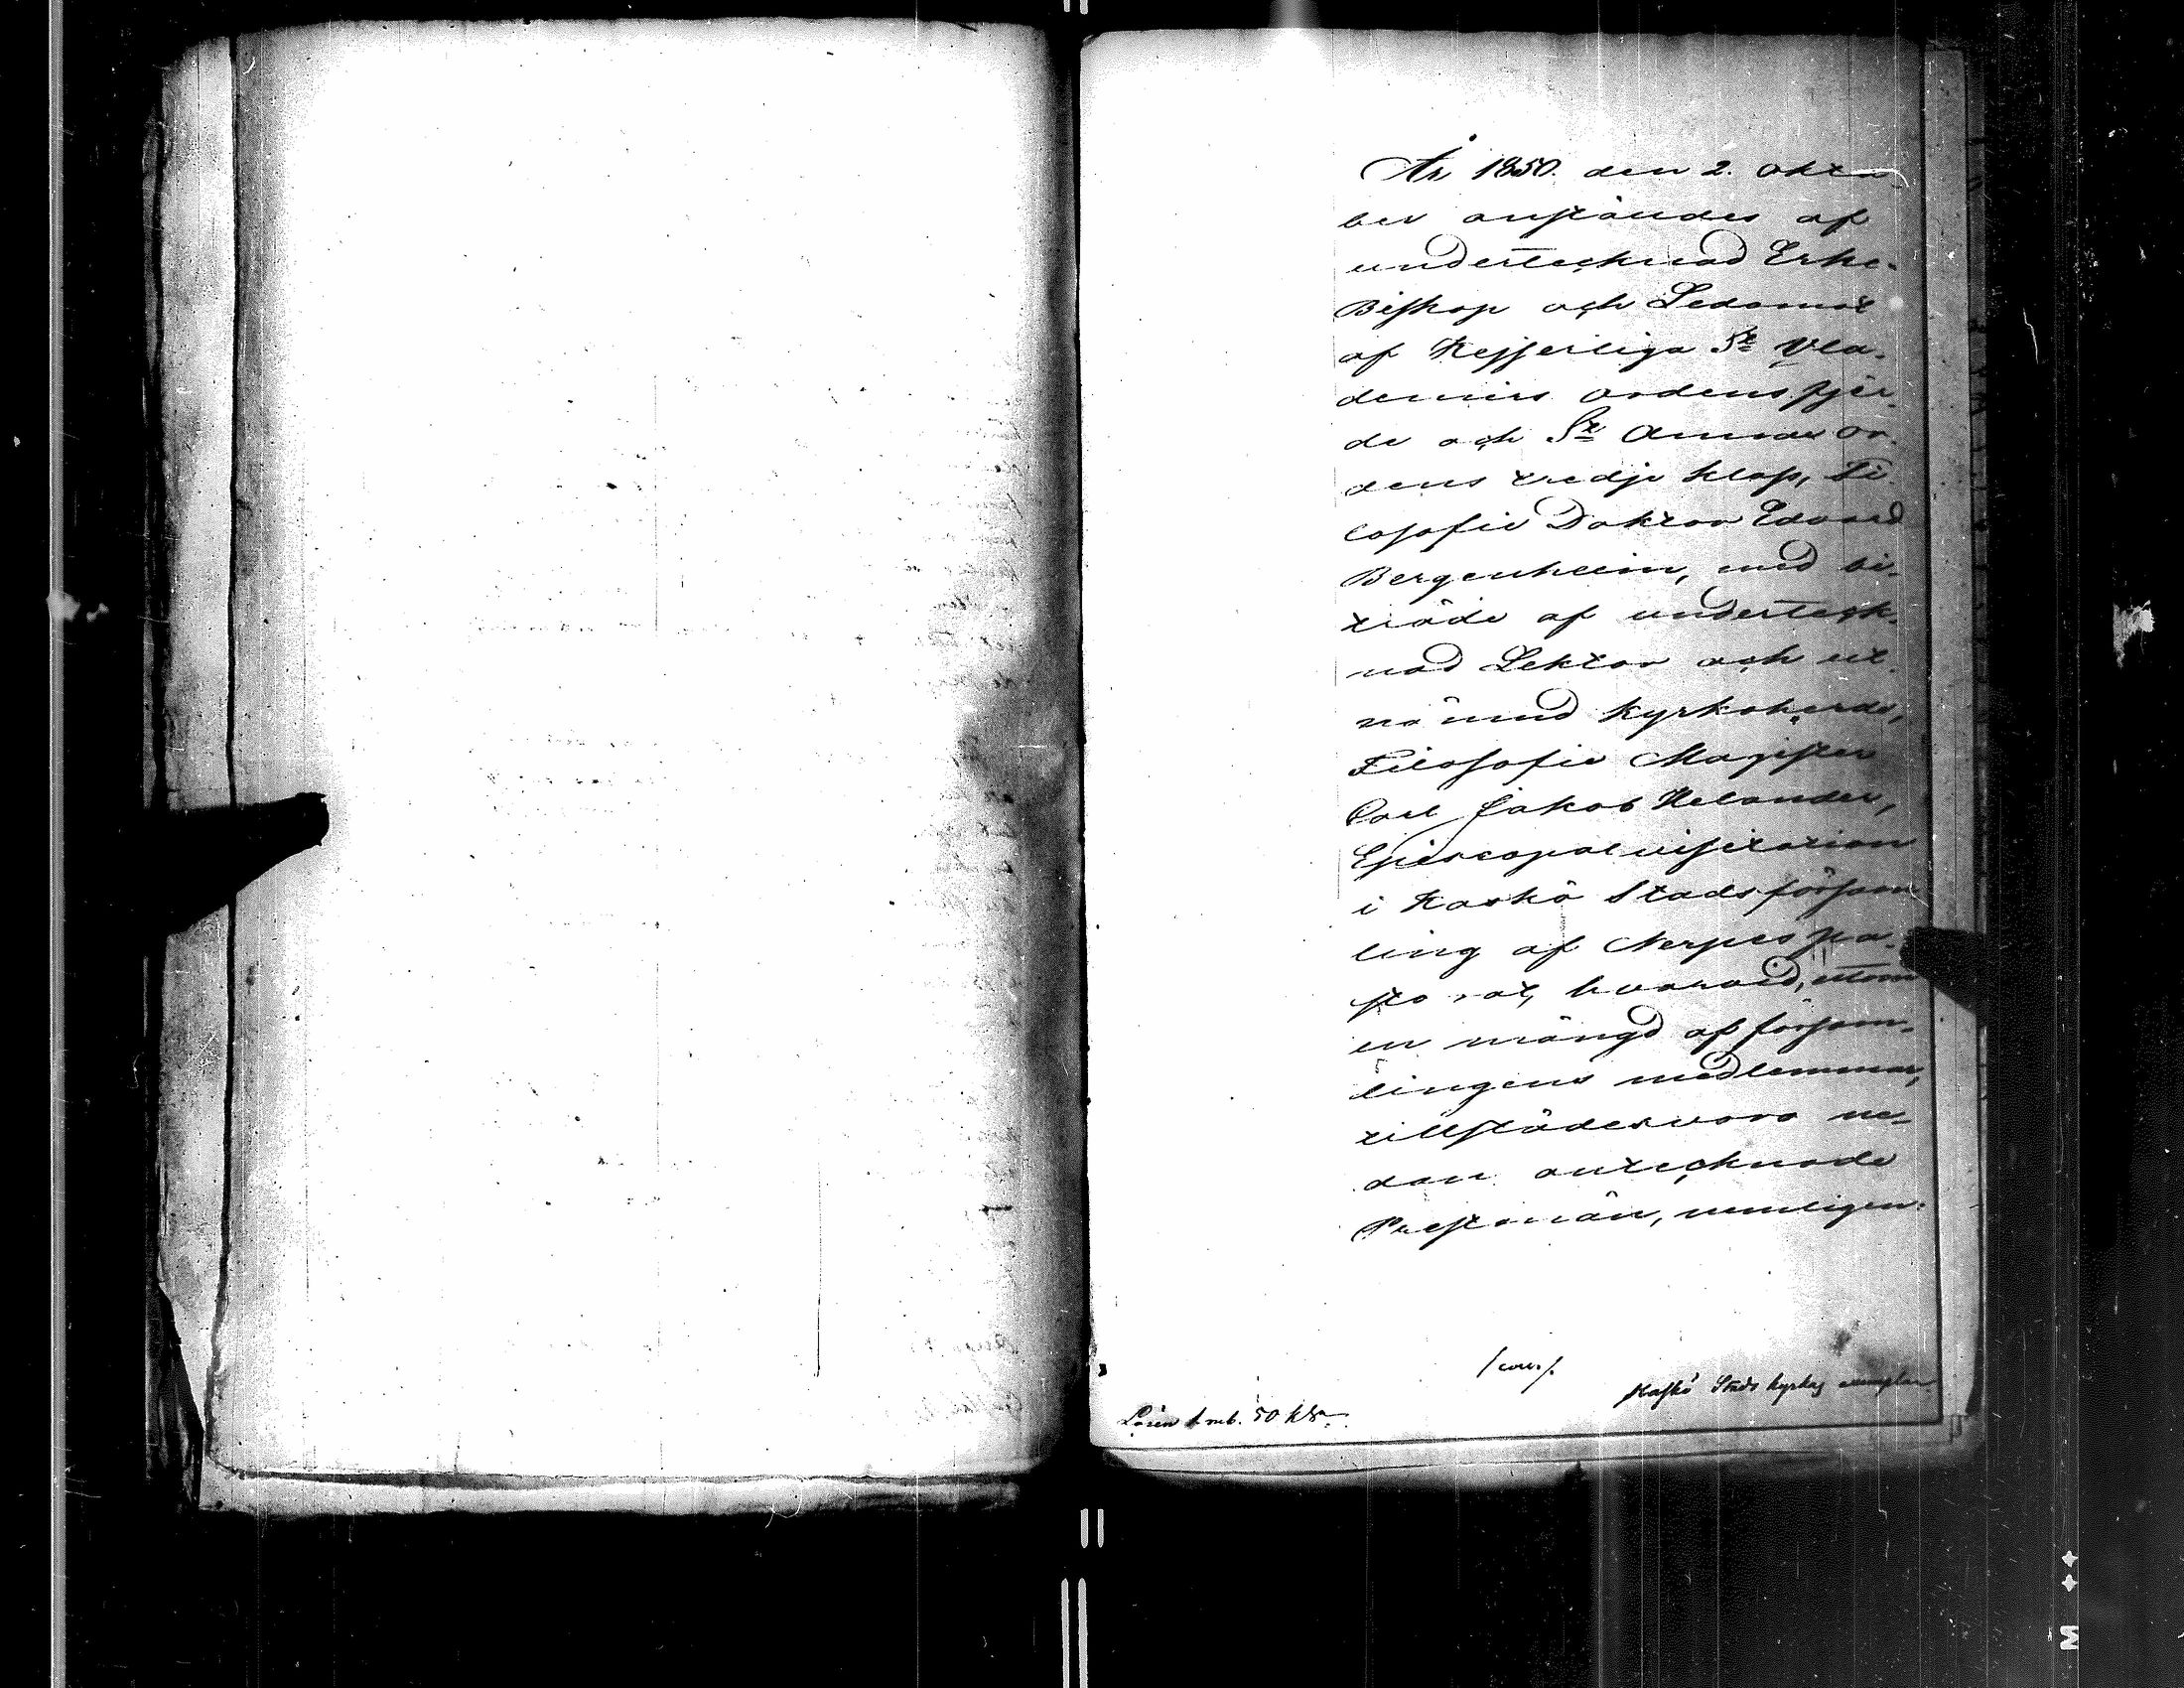 År 1850. den 2. Okto-
ber anstäldes af
undertecknad Erke-
Biskop och Ledamot
af Kejserliga St Vla-
dimirs ordens fjer-
de och St Annæ Or-
dens tredje klass, Fi-
losofie Doktor Edvard
Bergenheim, med bi-
träde af underteck-
nad Lektor och ut-
nämnd Kyrkoherde,
Filosofie Magister
Carl Jakob Helander,
Episcopalvisitation
i Kaskö Stads försam
ling af Nerpes pa-
storat, hvarvid, utom
en mängd af försam-
lingens medlemmar,
tillstädesvoro ne-
dan antecknade
Prestmän, nemligen:
Kaskö Stads kyrkas exemplar
Lösen 1 rub. 50 k